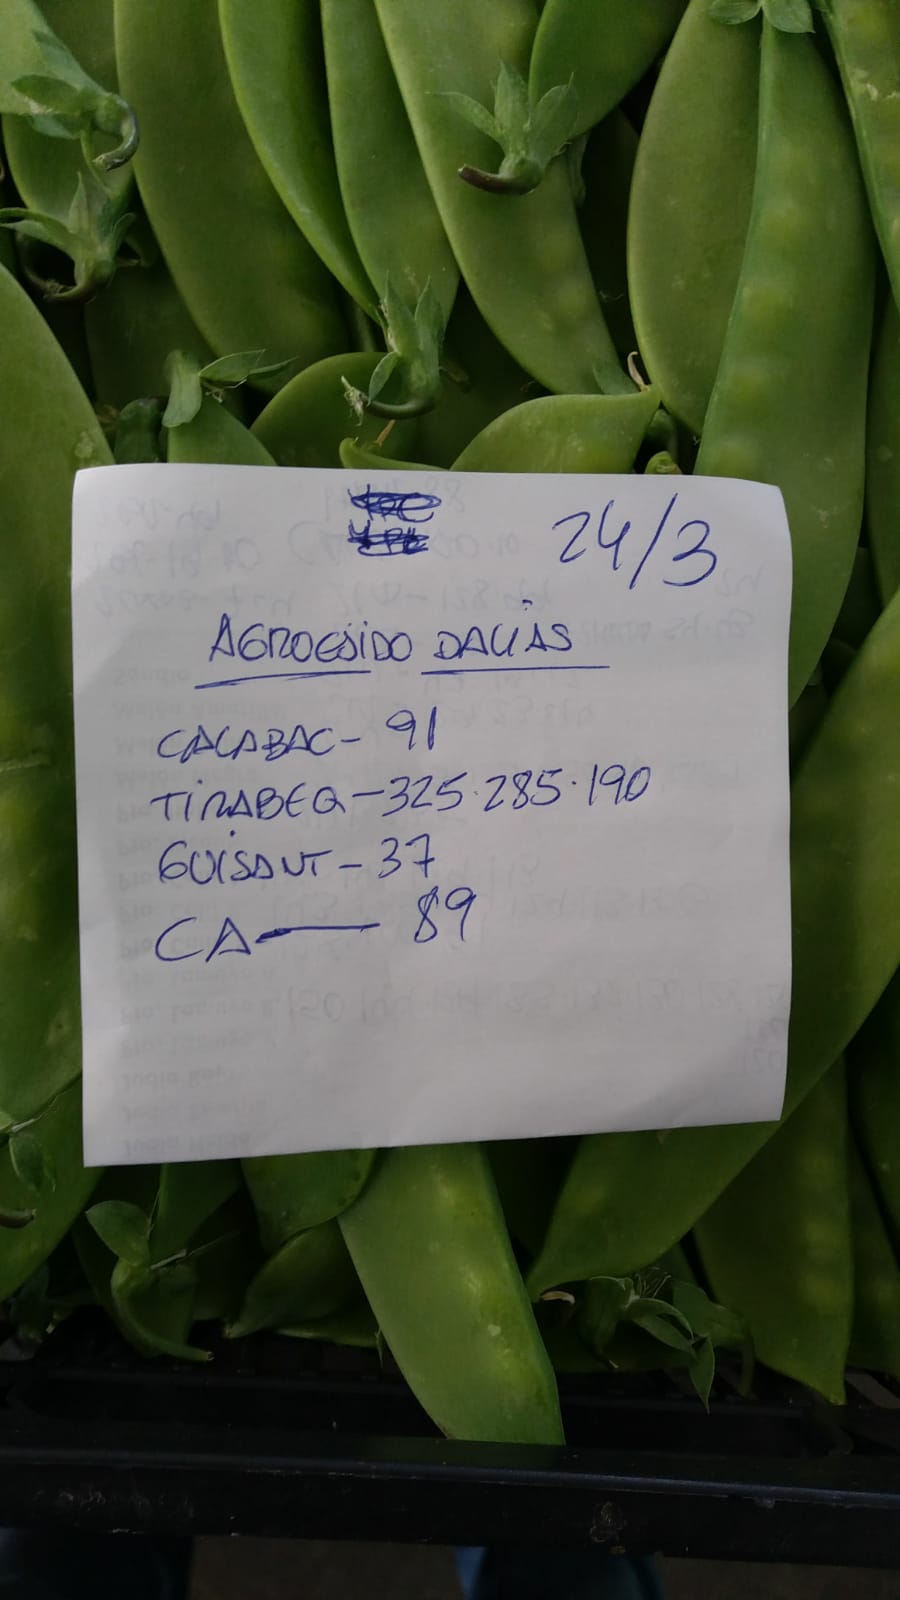 24/3
AGROEJIDO DALIAS
CALABAC - 91
TIRABEQ - 325.285.190
GUISANT - 37
CA — 89